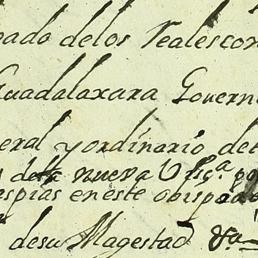 bado delos Reales con
Guadalaxara Govern
eral y ordinario de
dela nueva Viz.ª po
espias en este obispado
desu Magestad &ª